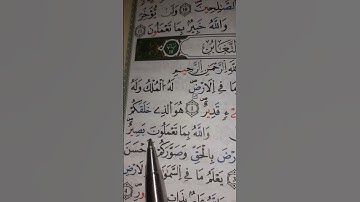 الصّٰلِحِيْنَ ۝ وَلَنْ يُّؤَخِّرَ
وَاللّٰهُ خَبِيْرٌۢ بِمَا تَعْمَلُوْنَ
التَّغَابُنِ
اللّٰهِ الرَّحْمٰنِ الرَّحِيْمِ
مَا فِي الْاَرْضِ لَهُ الْمُلْكُ وَلَهُ
قَدِيْرٌ ۝ هُوَ الَّذِيْ خَلَقَكُمْ
وَاللّٰهُ بِمَا تَعْمَلُوْنَ بَصِيْرٌ
بِالْحَقِّ وَصَوَّرَكُمْ
يَعْلَمُ مَا فِي السَّمٰوٰتِ